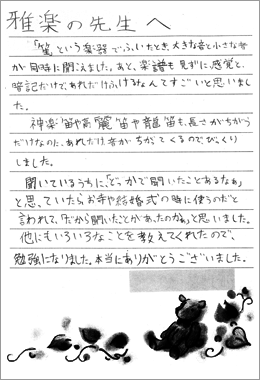 雅楽の先生へ
「笙」という楽器でふいたとき、大きな音と小さな音
が同時に聞こえました。あと、楽譜も見ずに、感覚と、
暗記だけで、あれだけふけるなんてすごいと思いまし
た。
神楽笛や高麗笛や龍笛も、長さがちがう
だけなのに、あれだけ音がちがてくるのでびっくり
しました。
聞いているうちに、「どっかで聞いたことあるなぁ」
と思っていたらお寺や結婚式の時に使うのだと
言われて、「だから聞いたことがあったのかぁ」と思いました。
他にもいろいろなことを教えてくれたので、
勉強になりました。本当にありがとうございました。